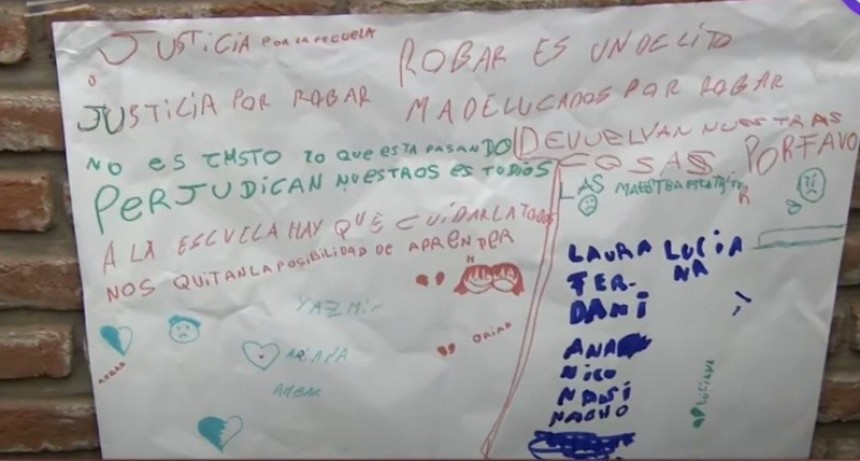 JUSTICIA POR LA ESCUELA
JUSTICIA POR ROBAR
NO ES LO QUE ESTA PASANDO
PERJUDICAN NUESTROS ESTUDIOS
A LA ESCUELA HAY QUE CUIDARLA TODOS
NOS QUITAN LA POSIBILIDAD DE APRENDER
ROBAR ES UN DELITO
MADELUCADOS POR ROBAR
DEVUELVAN NUESTRAS
COSAS PORFAVO
LAS MAESTRA ESTA
LAURA LUCIA
FER- NA
DANI
ANA
NICO
NANI
NACHO
LUCIANA
YAZMIN
ARIANA
AMBAR
AMBAR
ORIANA